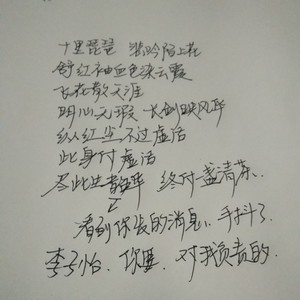 十里琵琶 悲吟陌上花
舒红袖血色染云霞
飞花散天涯
明心无瑕 长剑映风华
纵红尘不过虚话
此身付虚话
尽此生 华 终付盏清茶.
看到你发的消息,手抖了.
李子怡.你要.对我负责的.